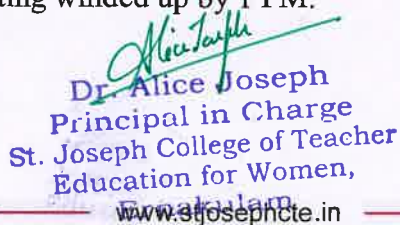 ting winded up by 1 PM.
Alice Joseph
Dr. Alice Joseph
Principal in Charge
St. Joseph College of Teacher
Education for Women,
Ernakulam
www.stjosephcte.in